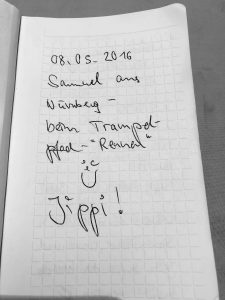 08.05.2016
Samuel aus
Nürnberg -
beim Trampel-
pfad-"Rennen"
Jippi!